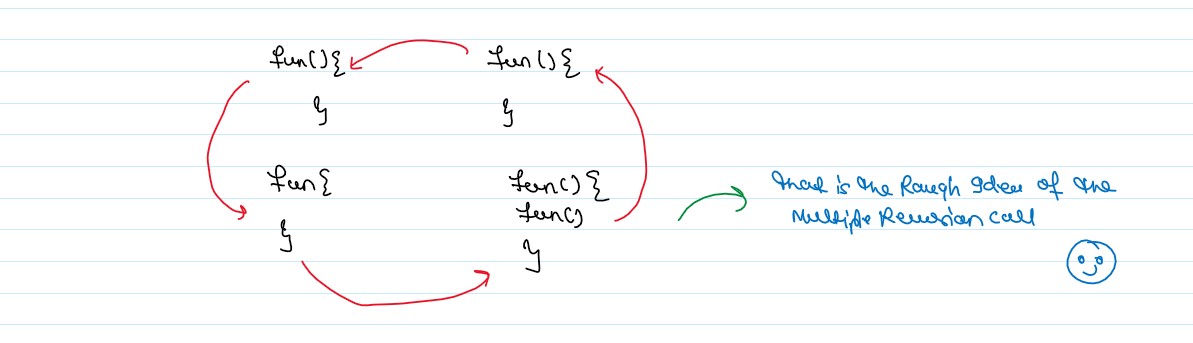 fun(){ fun(){
} }
fun{ fun(){
fun()
} }
that is the Rough Idea of the
Multiple Recursion call